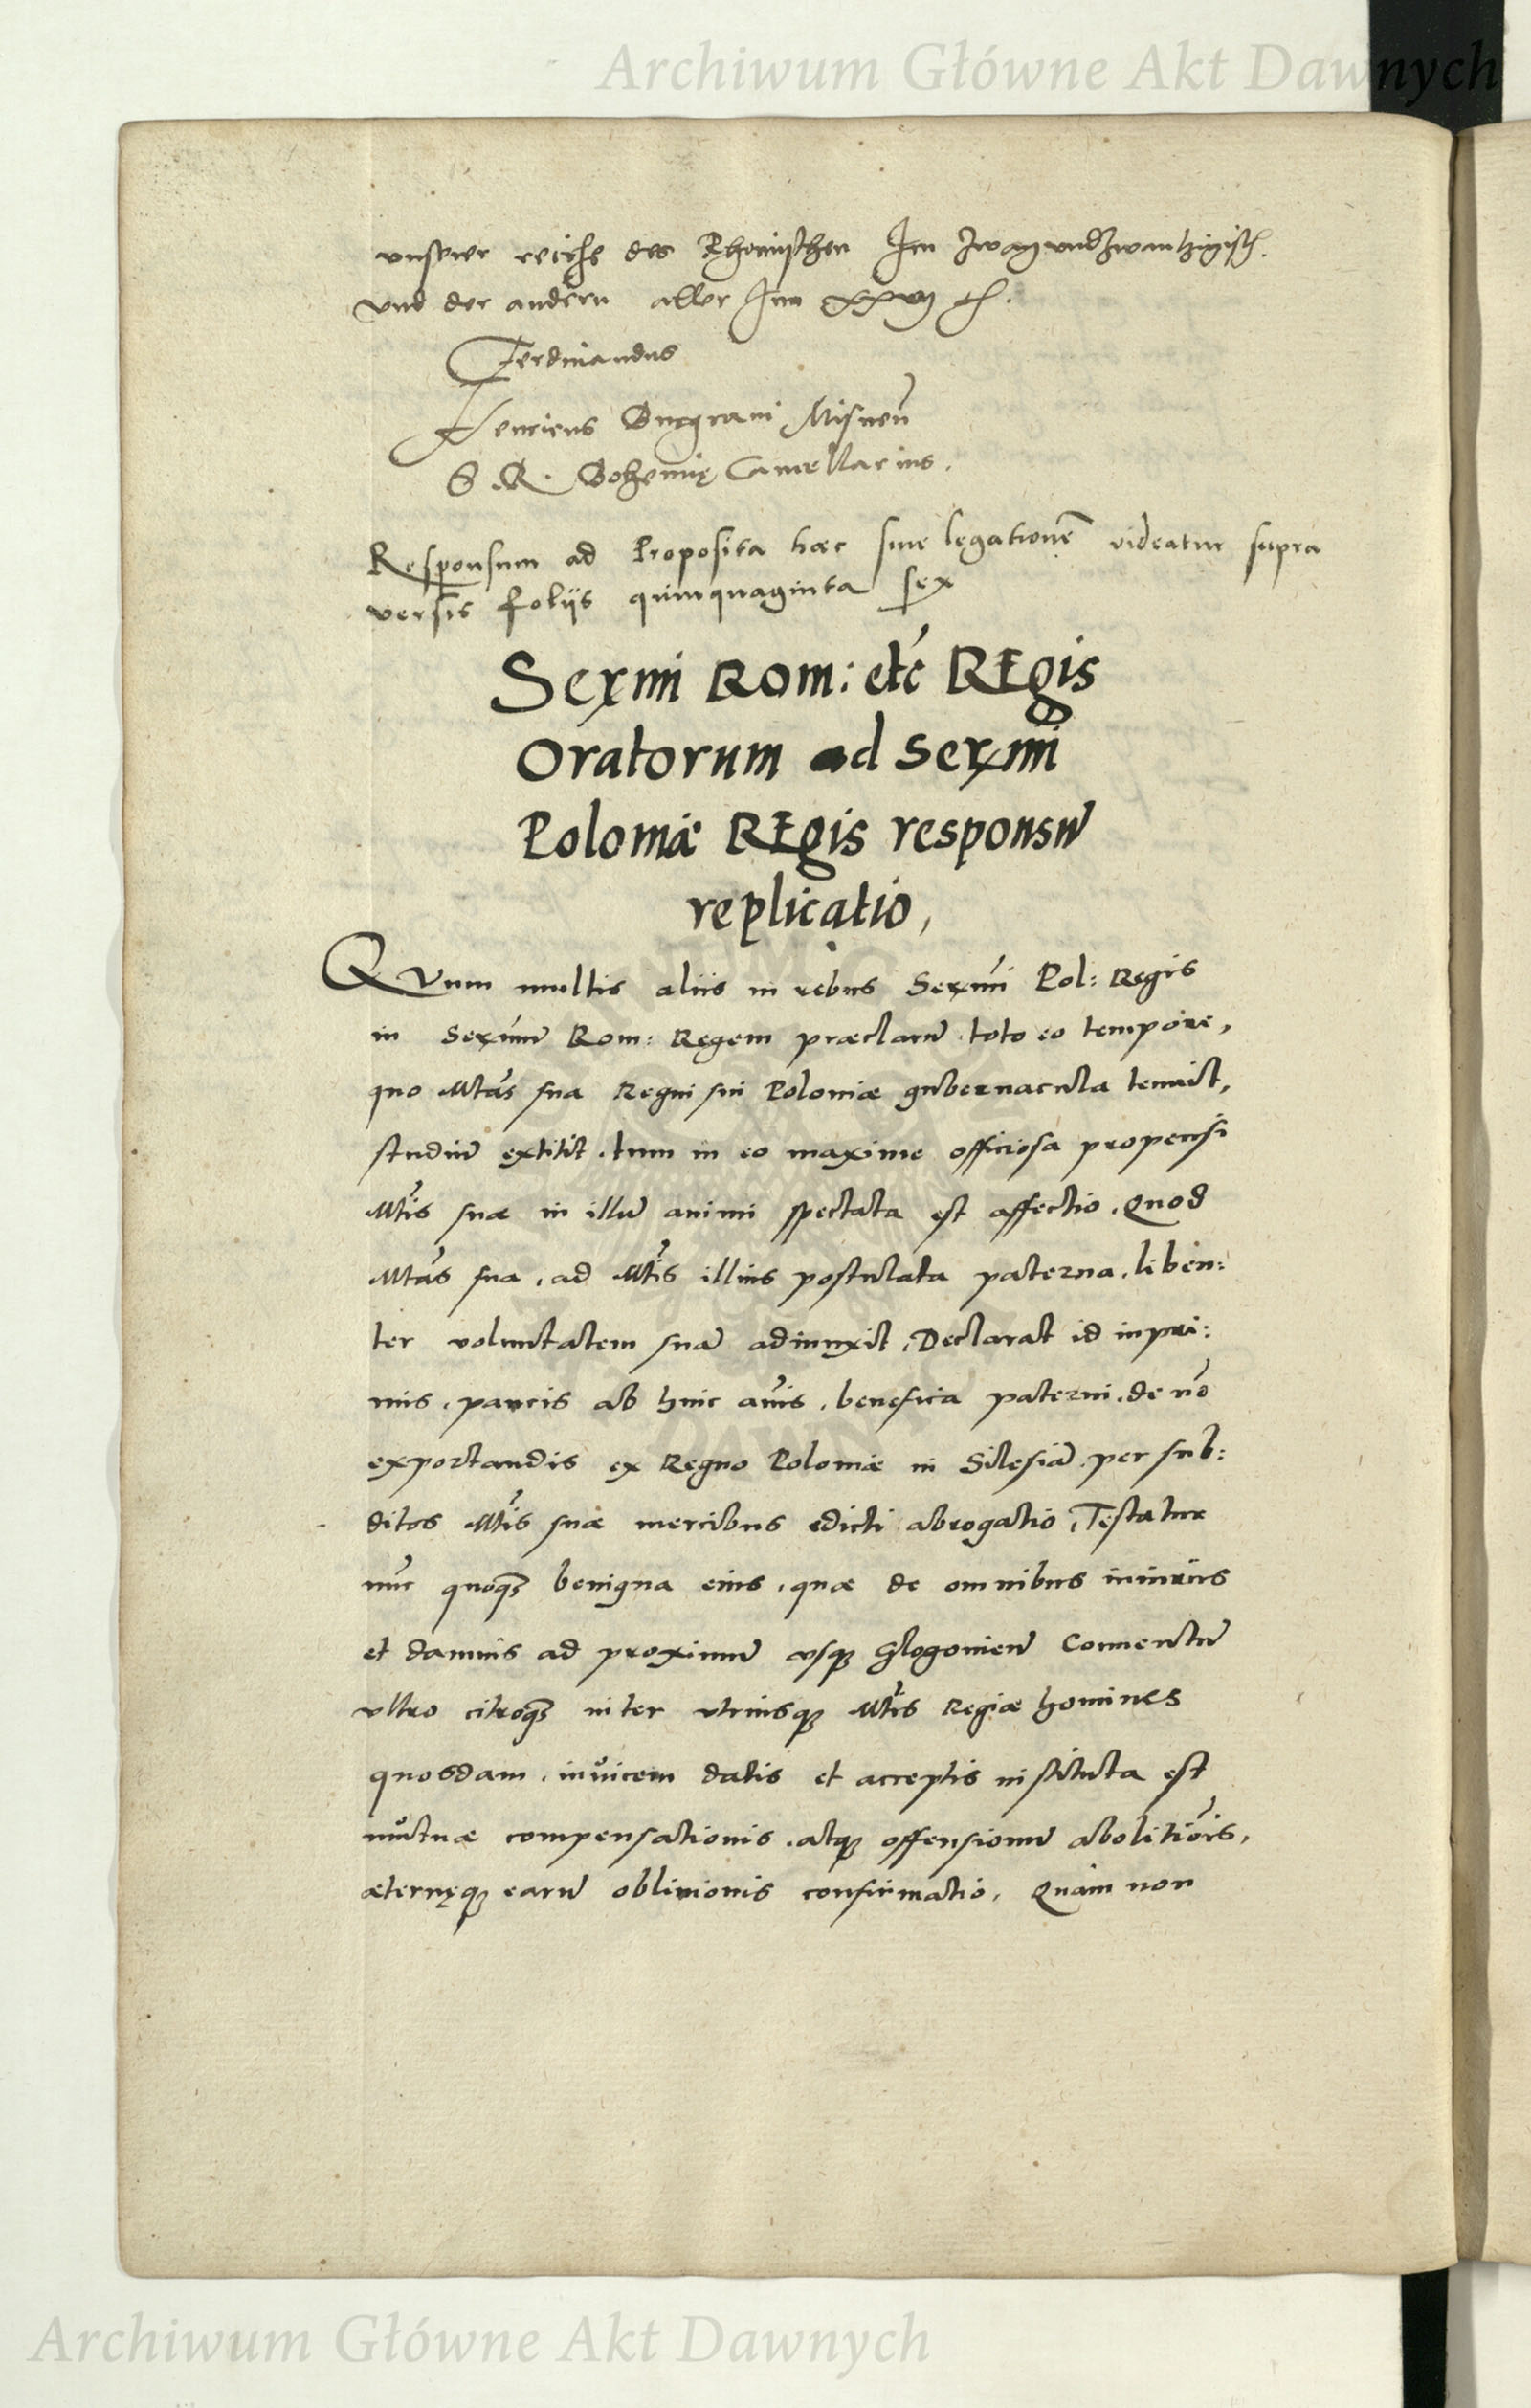 Archiwum Główne Akt Dawnych
vnserer reichs des Rhomischen Im zwayundzwantzigist.
vnd der andern aller Im
Ferdinandus
Henricus Burgravi Misnen
S. R. Bohemię Cancellarius.
Responsum ad Proposita hæc siue legationẽ videatur supra
versis folijs quinquaginta sex
Serᵐⁱ Rom: etc Regis
Oratorum ad Serᵐⁱ
Poloniæ Regis responsū
replicatio,
QVum multis aliis in rebus Serᵐⁱ Pol: Regis
in Serᵐᵘᵐ Rom: Regem præclarū toto eo tempore,
quo Mtas sua Regni sui Poloniæ gubernacula tenuit,
studiū extitit, tum in eo maxime officiosa propensi
Mtis suæ in illū animi spectata est affectio, Quod
Mtas sua, ad Mtis illius postulata paterna, liben:
ter voluntatem suã adiunxit, Declarat id inpri:
mis, paucis ab hinc añis, benefica paterni, de nõ
exportandis ex Regno Poloniæ in Silesiã, per sub:
ditos Mtis suæ mercibus edicti abrogatio, Testatur
nũc quoq3 benigna eius, quæ de omnibus iniuriis
et damnis ad proximū vsq3 Glogovien̄ Conventū
vltro citroq3 inter vtriusq3 Mtis Regiæ homines
quosdam, invicem datis et acceptis instituta est
mutuæ compensationis, atq3 offensionū abolitiõis,
æternęq3 earū oblivionis confirmatio, Quam non
Archiwum Główne Akt Dawnych